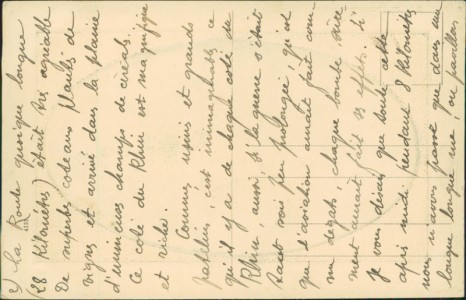 2/ la Route quoique longue
(28 Kilomètres) était très agréable
De superbes coteaux plantés de
vignes et arrivé dans la plaine
d'immenses champs de céréals.
Ce coté du Rhin est magnifique
et riche.
Comme usines et grands
patelins, c'est inimaginable ce
qu'il y a de chaque coté du
Rhin, aussi, si la guerre s'était
tant soit peu prolongée qu'est
que l'aviation aurait fait comme
me dégats chaque bombe
ment aurait fait ses effets. Si
Je vous disais que toute cette
après midi pendant 8 Kilomètres
nous n'avons passé que dans une
longue longue rue, ou pavillon